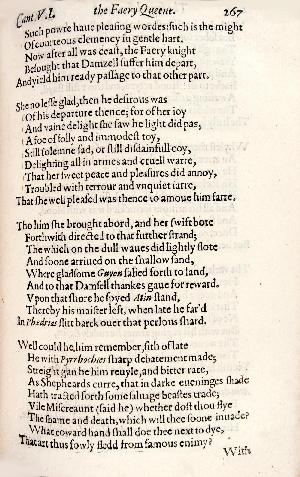 Cant. VI. the Faery Queene. 267
Such powre haue pleasing wordes: such is the might
Of courteous clemency in gentle hart.
Now after all was ceast, the Faery knight
Besought that Damzell suffer him depart,
And yield him ready passage to that other part.
She no lesse glad, then he desirous was
Of his departure thence; for of her ioy
And vaine delight she saw he light did pas,
A foe of folly and immodest toy,
Still solemne sad, or still disdainfull coy,
Delighting all in armes and cruell warre,
That her sweet peace and pleasures did annoy,
Troubled with terrour and vnquiet iarre,
That she well pleased was thence to amoue him farre.
Tho him she brought abord, and her swift bote
Forthwith directed to that further strand;
The which on the dull waues did lightly flote
And soone arriued on the shallow sand,
Where gladsome Guyon salied forth to land,
And to that Damsell thankes gaue for reward.
Vpon that shore he spyed Atin stand,
Thereby his maister left, when late he far'd
In Phedrias flitt barck ouer that perlous shard.
Well could he him remember, sith of late
He with Pyrrhochles sharp debatement made;
Streight gan he him reuyle, and bitter rate,
As Shepheards curre, that in darke eueninges shade
Hath tracted forth some saluage beastes trade;
Vile Miscreaunt (said he) whether dost thou flye
The shame and death, which will thee soone inuade?
What coward hand shall doe thee next to dye,
That art thus fowly fledd from famous enimy?
With